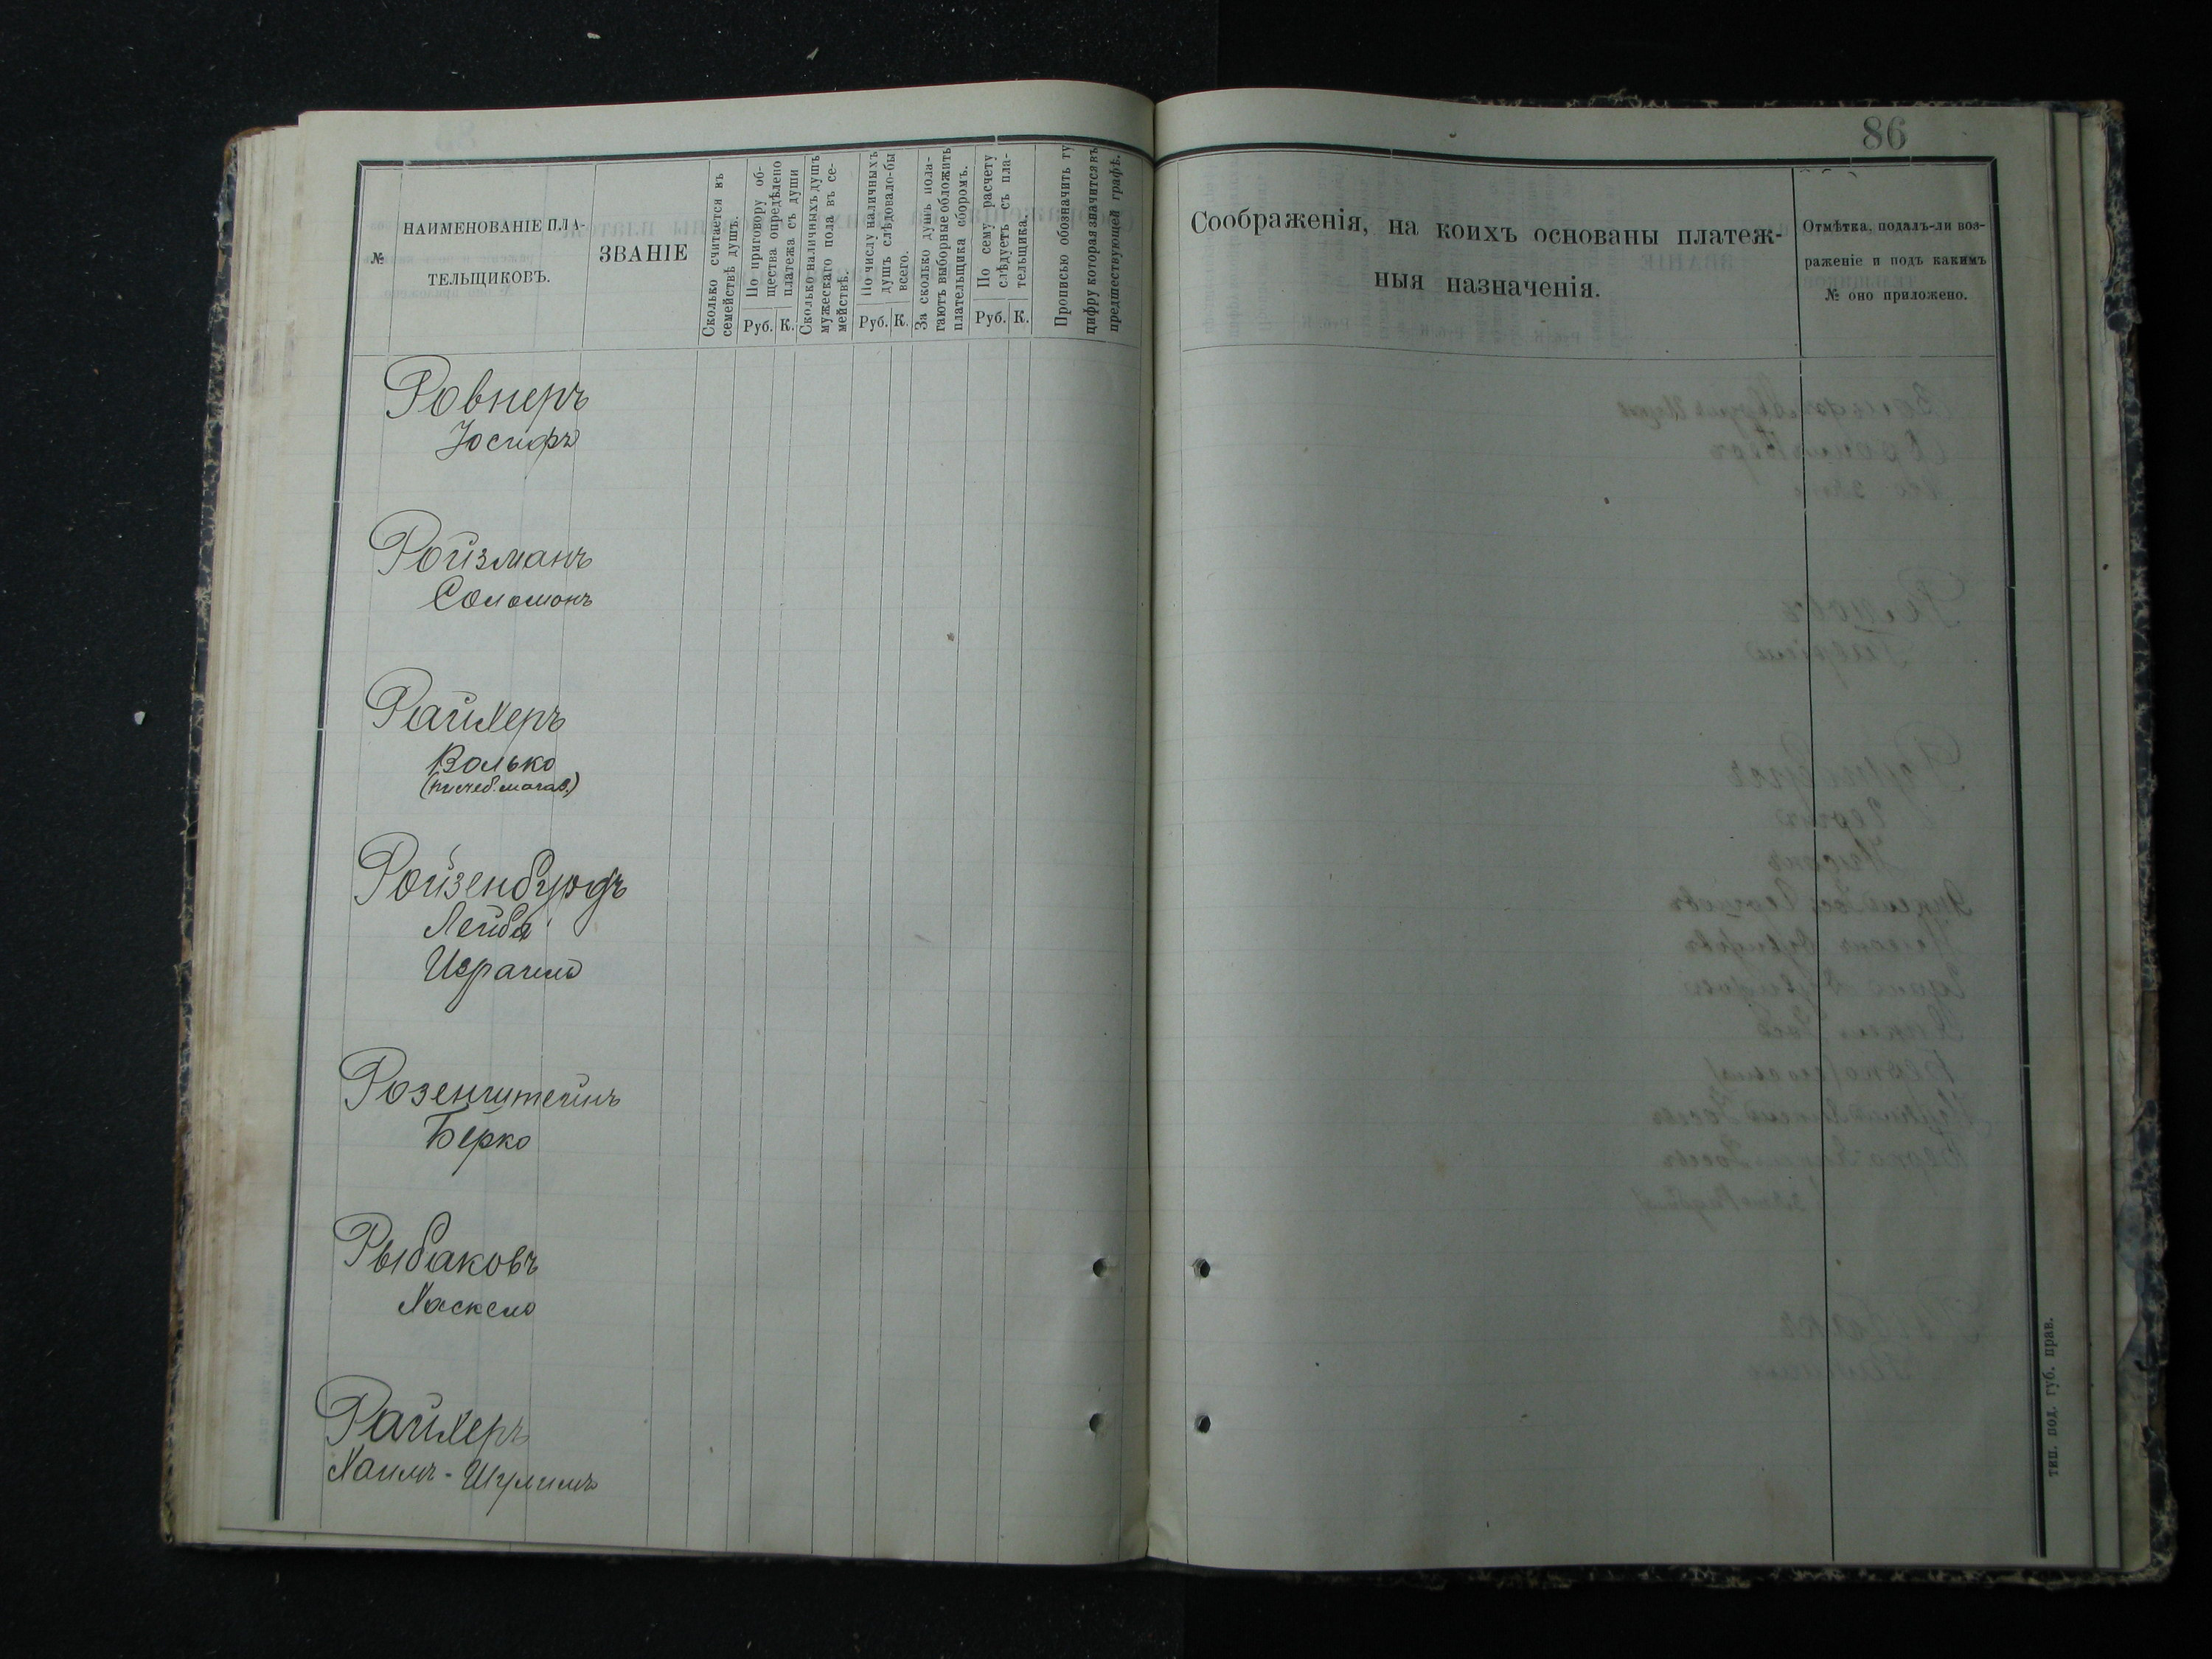 86
№
НАИМЕНОВАНІЕ ПЛА-
ТЕЛЬЩИКОВЪ.
ЗВАНІЕ
Сколько считается въ
семействѣ душъ.
По приговору об-
щества опредѣлено
платежа съ души
Руб. К.
Сколько наличныхъ душъ
мужескаго пола въ се-
мействѣ.
По числу наличныхъ
душъ слѣдовало-бы
всего.
Руб. К.
За сколько душъ пола-
гаютъ выборные обложить
плательщика сборомъ.
По сему расчету
слѣдуетъ съ пла-
тельщика.
Руб. К.
Прописью обозначить ту
цифру которая значится въ
предшествующей графѣ.
Соображенія, на коихъ основаны платеж-
ныя назначенія.
Отмѣтка, подалъ-ли воз-
раженіе и подъ какимъ
№ оно приложено.
Ровнеръ
Іосифъ
Ройзманъ
Соломонъ
Райхеръ
Волько
Ройзенбурдъ
Лейба
Израиль
Розенштейнъ
Берко
Рыбаковъ
Хаскель
Райхеръ
Хаимъ-Шулимъ
тип. под. губ. прав.